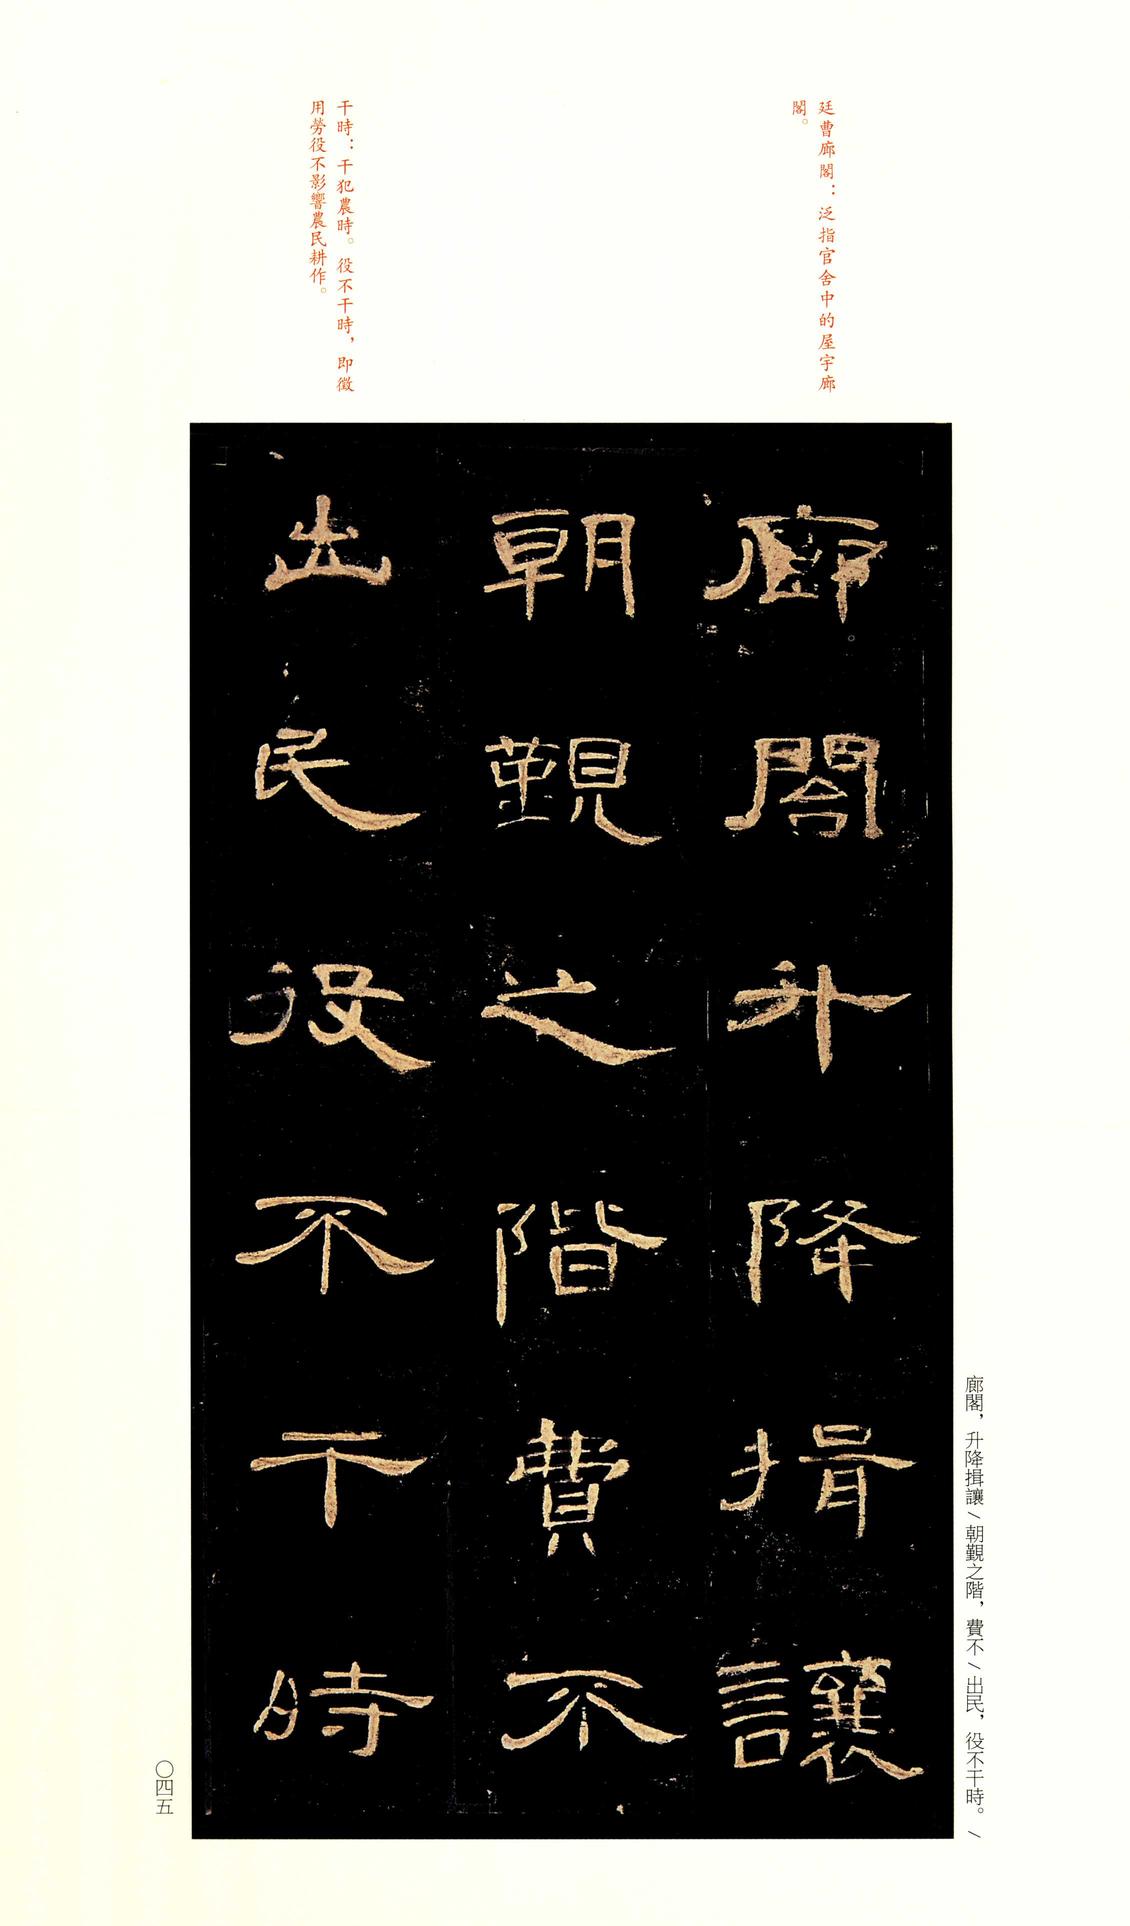 廷曹廊閣：泛指官舍中的屋宇廊
閣。
干時：干犯農時。役不干時，即徵
用勞役不影響農民耕作。
廊閣升降揖讓
朝覲之階費不
出民役不干時
廊閣，升降揖讓／朝覲之階，費不／出民，役不干時。／
〇四五